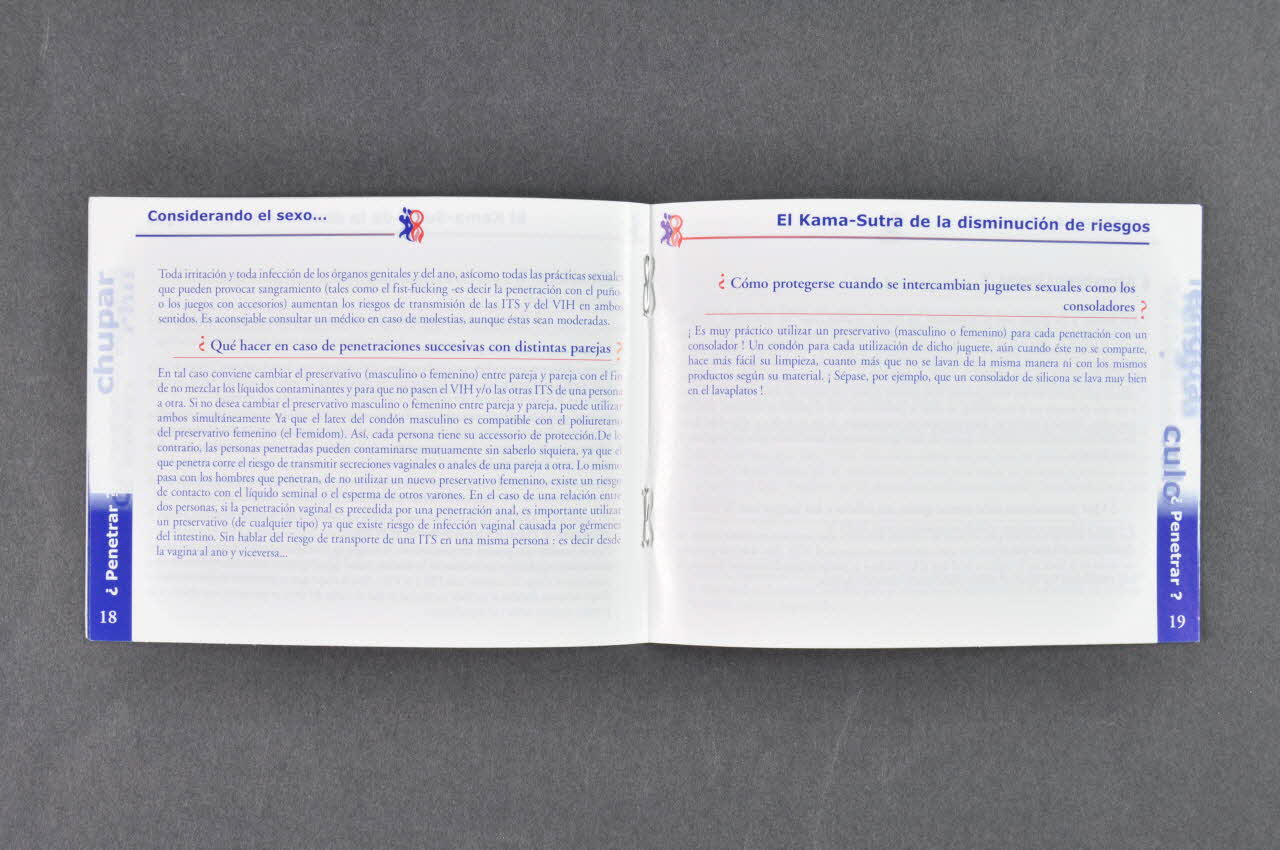 Considerando el sexo...
Toda irritación y toda infección de los órganos genitales y del ano, asícomo todas las prácticas sexuale
que pueden provocar sangramiento (tales como el fist-fucking -es decir la penetración con el puño
o los juegos con accesorios) aumentan los riesgos de transmisión de las ITS y del VIH en ambos
sentidos. Es aconsejable consultar un médico en caso de molestias, aunque éstas sean moderadas.
¿ Qué hacer en caso de penetraciones succesivas con distintas parejas ?
En tal caso conviene cambiar el preservativo (masculino o femenino) entre pareja y pareja con el fin
de no mezclar los líquidos contaminantes y para que no pasen el VIH y/o las otras ITS de una persona
a otra. Si no desea cambiar el preservativo masculino o femenino entre pareja y pareja, puede utilizar
ambos simultáneamente Ya que el latex del condón masculino es compatible con el poliuretano
del preservativo femenino (el Femidom). Así, cada persona tiene su accessorio de protección.De lo
contrario, las personas penetradas pueden contaminarse mutuamente sin saberlo siquiera, ya que el
que penetra corre el riesgo de transmitir secreciones vaginales o anales de una pareja a otra. Lo mismo
pasa con los hombres que penetran, de no utilizar un nuevo preservativo femenino, existe un riesgo
de contacto con el líquido seminal o el esperma de otros varones. En el caso de una relación entre
dos personas, si la penetración vaginal es precedida por una penetración anal, es importante utilizar
un preservativo (de cualquier tipo) ya que existe riesgo de infección vaginal causada por gérmenes
del intestino. Sin hablar del riesgo de transporte de una ITS en una misma persona : es decir desde
la vagina al ano y viceversa...
chupar
¿ Penetrar ?
18
El Kama-Sutra de la disminución de riesgos
¿ Cómo protegerse cuando se intercambian juguetes sexuales como los
consoladores ?
¡ Es muy práctico utilizar un preservativo (masculino o femenino) para cada penetración con un
consolador ! Un condón para cada utilización de dicho juguete, aún cuando éste no se comparte,
hace más fácil su limpieza, cuanto más que no se lavan de la misma manera ni con los mismos
productos según su material. ¡ Sépase, por ejemplo, que un consolador de silicona se lava muy bien
en el lavaplatos !
culo
¿ Penetrar ?
19